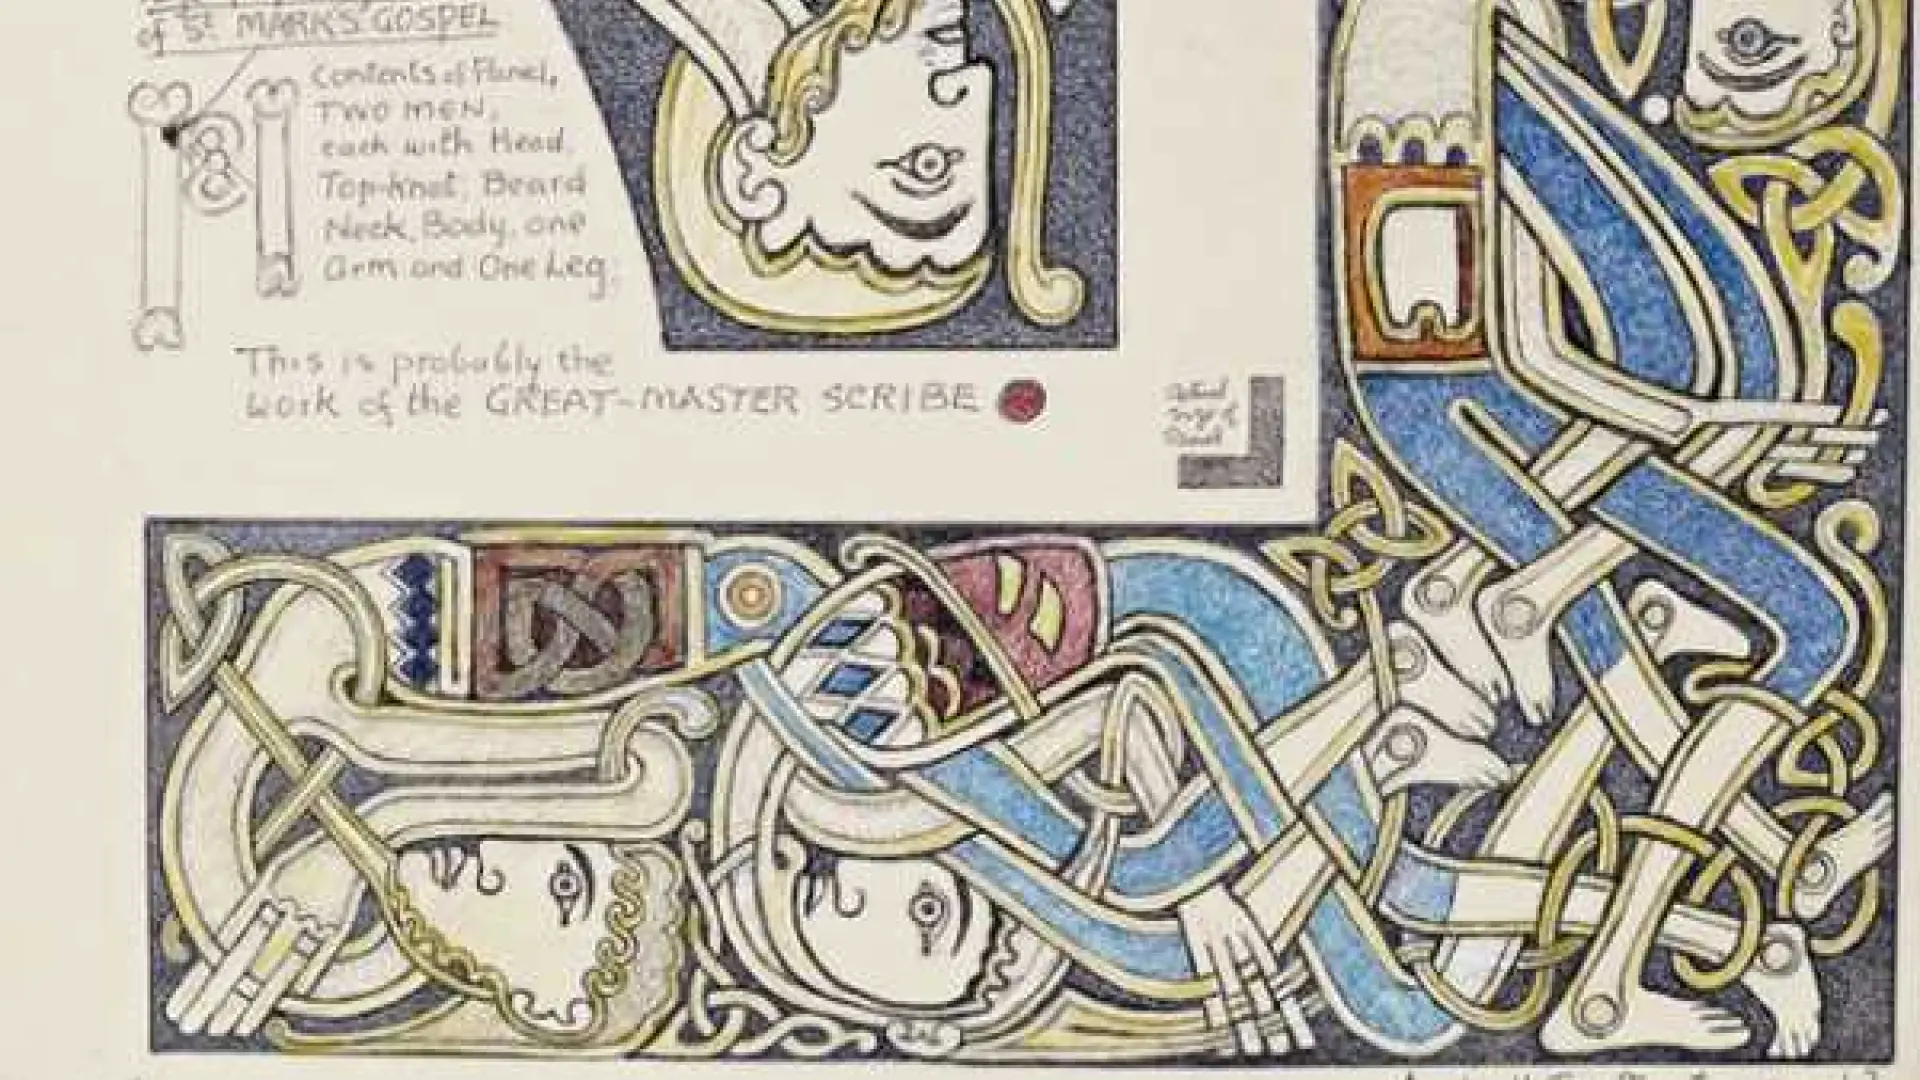 of St. MARK'S GOSPEL
Contents of Panel,
TWO MEN,
each with Head,
Top-Knot, Beard
Neck, Body, one
Arm and One Leg;
This is probably the
work of the GREAT-MASTER SCRIBE
Actual
Size of